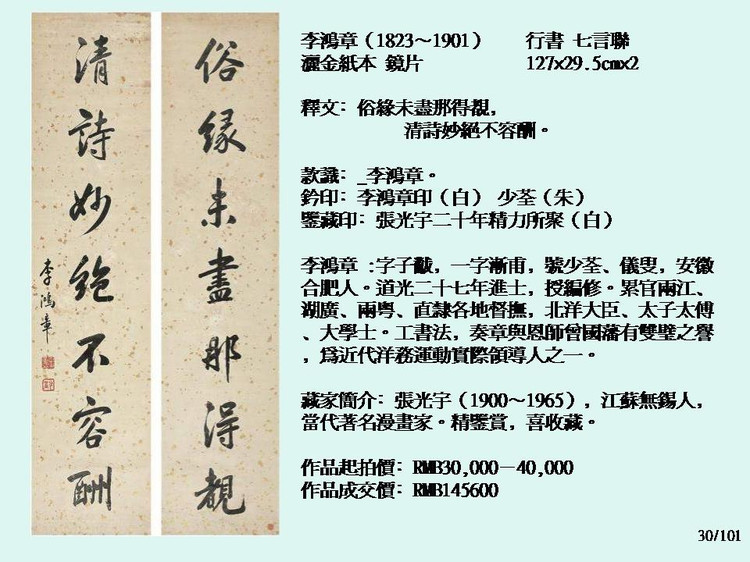 俗緣未盡那得覩
清詩妙絕不容酬
李鴻章
李鴻章（1823～1901）　行書 七言聯
灑金紙本 鏡片　127x29.5cmx2
釋文: 俗緣未盡那得覩,
清詩妙絕不容酬。
款識: _李鴻章。
鈐印: 李鴻章印（白） 少荃（朱）
鑒藏印: 張光宇二十年精力所聚（白）
李鴻章 :字子黻, 一字漸甫, 號少荃、儀叟, 安徽
合肥人。道光二十七年進士, 授編修。累官兩江、
湖廣、兩粵、直隸各地督撫, 北洋大臣、太子太傅
、大學士。工書法, 奏章與恩師曾國藩有雙璧之譽
, 為近代洋務運動實際領導人之一。
藏家簡介: 張光宇（1900～1965）, 江蘇無錫人,
當代著名漫畫家。精鑒賞, 喜收藏。
作品起拍價: RMB30,000－40,000
作品成交價: RMB145600
30/101